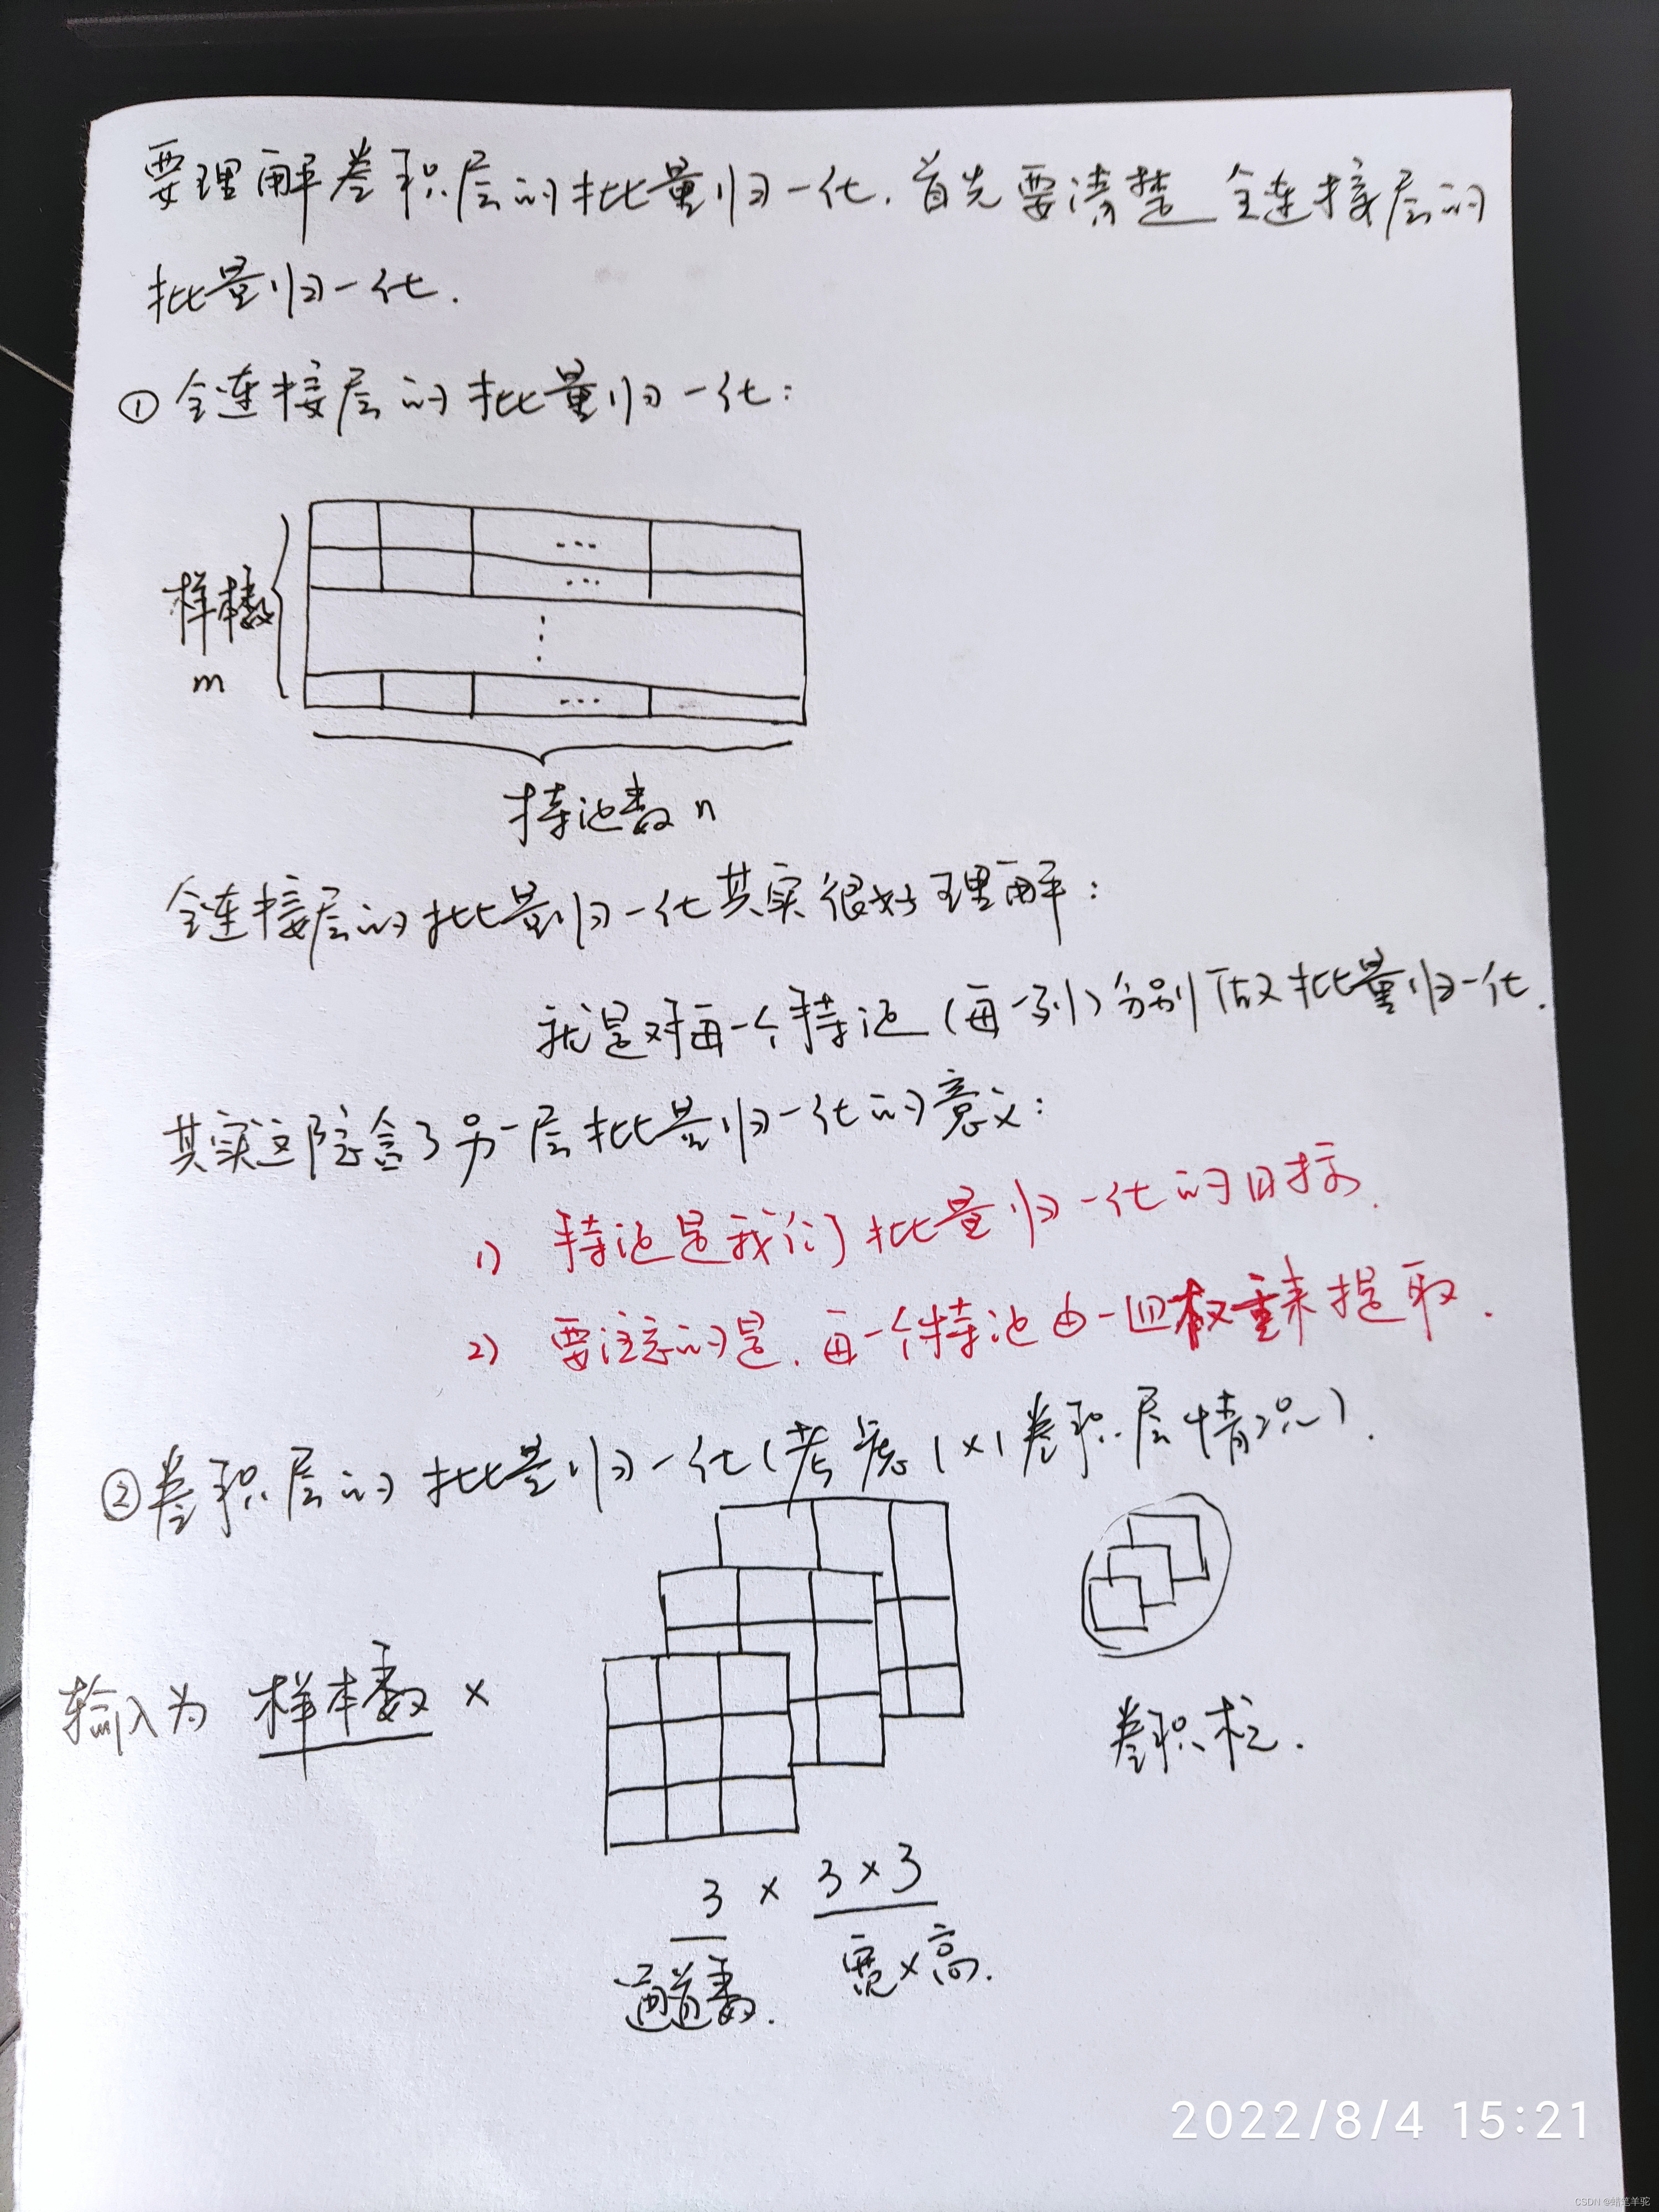 要理解卷积层的批量归一化.首先要清楚 全连接层的
批量归一化.
① 全连接层的批量归一化:
...
...
样本数
m
...
特征数 n
全连接层的批量归一化其实很好理解:
就是对每一个特征(每一列)分别做批量归一化.
其实这隐含了另一层批量归一化的意义:
1) 特征是我们批量归一化的目标.
2) 要注意的是.每一个特征由一组权重来提取.
②卷积层的批量归一化(考虑1×1卷积层情况).
输入为 样本数 ×
卷积核.
3 × 3×3
通道数. 宽×高.
2022/8/4 15:21
CSDN @蜡笔羊驼